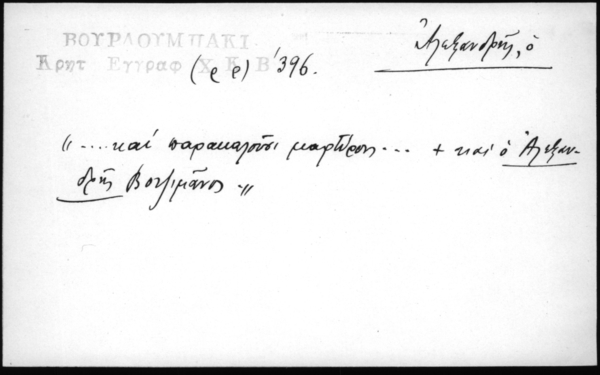 ΒΟΥΡΔΟΥΜΠΑΚΙ
Κρητ Εγγραφ Χ Κ Β΄ 396.
(ρ ρ)
Ἀλεξανδρῆς, ὁ
"....καί παρακαλοῦσι μαρτύροι... + καί ὁ Ἀλεξαν-
δρῆς Βουζιμᾶνος "